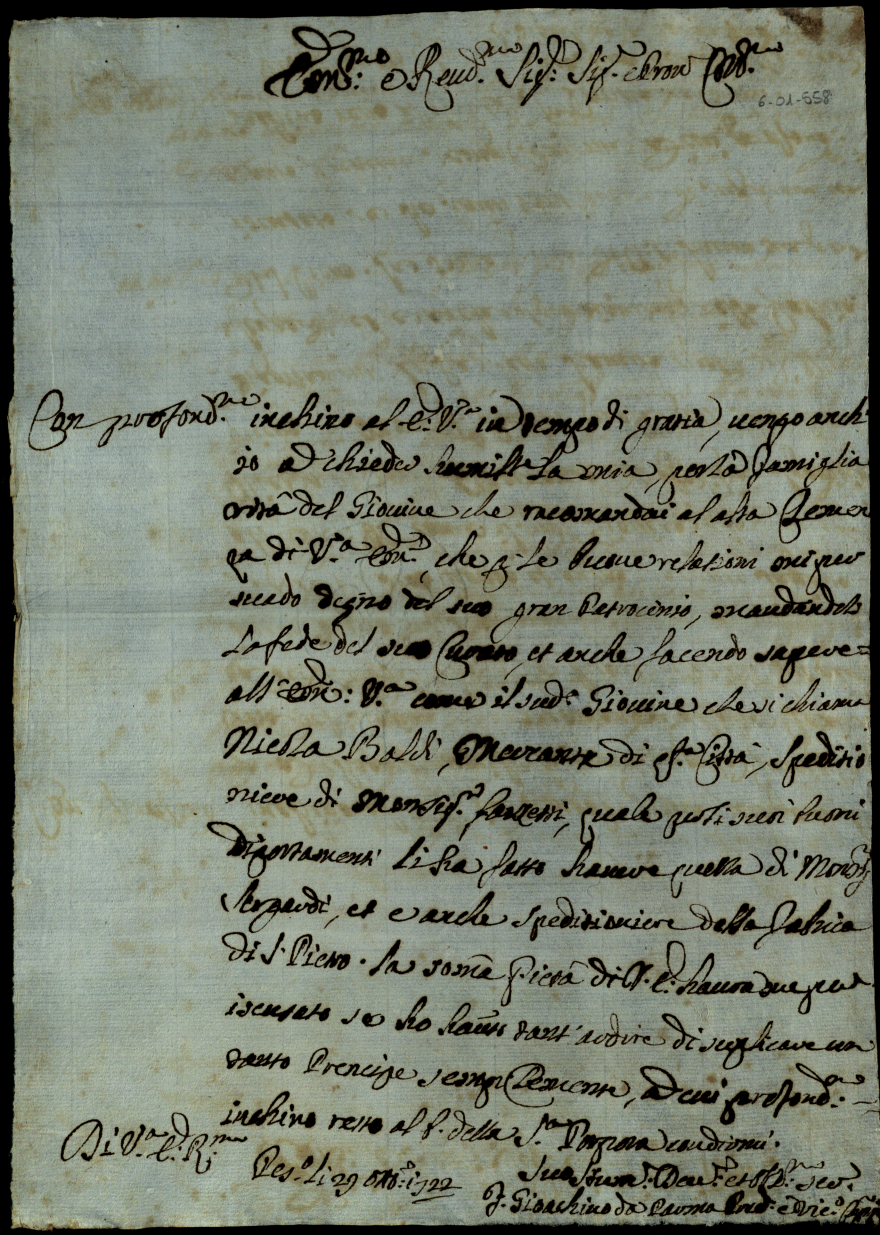 Em.mo e Reud.mo Sig.r Sig.r Pron Col.mo
6-01-558
Con profond.mo inchino al E. V.ra in tempo di gratia, uengo anch'
io a chieder humil.te la mia, per la famiglia
rità del Giouine che racomandai al alta Clemen
za di V.ra Em.a, che p le buone relationi mi per
suado degno del suo gran Patrocinio, mandandoli
la fede del suo Curato, et anche facendo sapere
all' Em.a V.ra come il sud.o Giouine che si chiama
Nicola Baldi, di q.ta Città, speditio
niere di Monsig.r, quale p li suoi buoni
diportamenti li ha fatto hauere quella di Mons.r
Sergardi, et e anche speditioniere della Fabrica
di S. Pietro. la soma Pietà di V. E. haura me per
iscusato se ho hauto tant' ardire di suplicare un
tanto Prencipe semp Clemente, ad cui profond.mo
inchino resto al b. della S.ra Porpora
Di V.ra E. R.ma
Pes.o li 29 Ott.e 1722
Deu.mo et ser.
F. Gioachino da Parma Pred.e e Vic.o